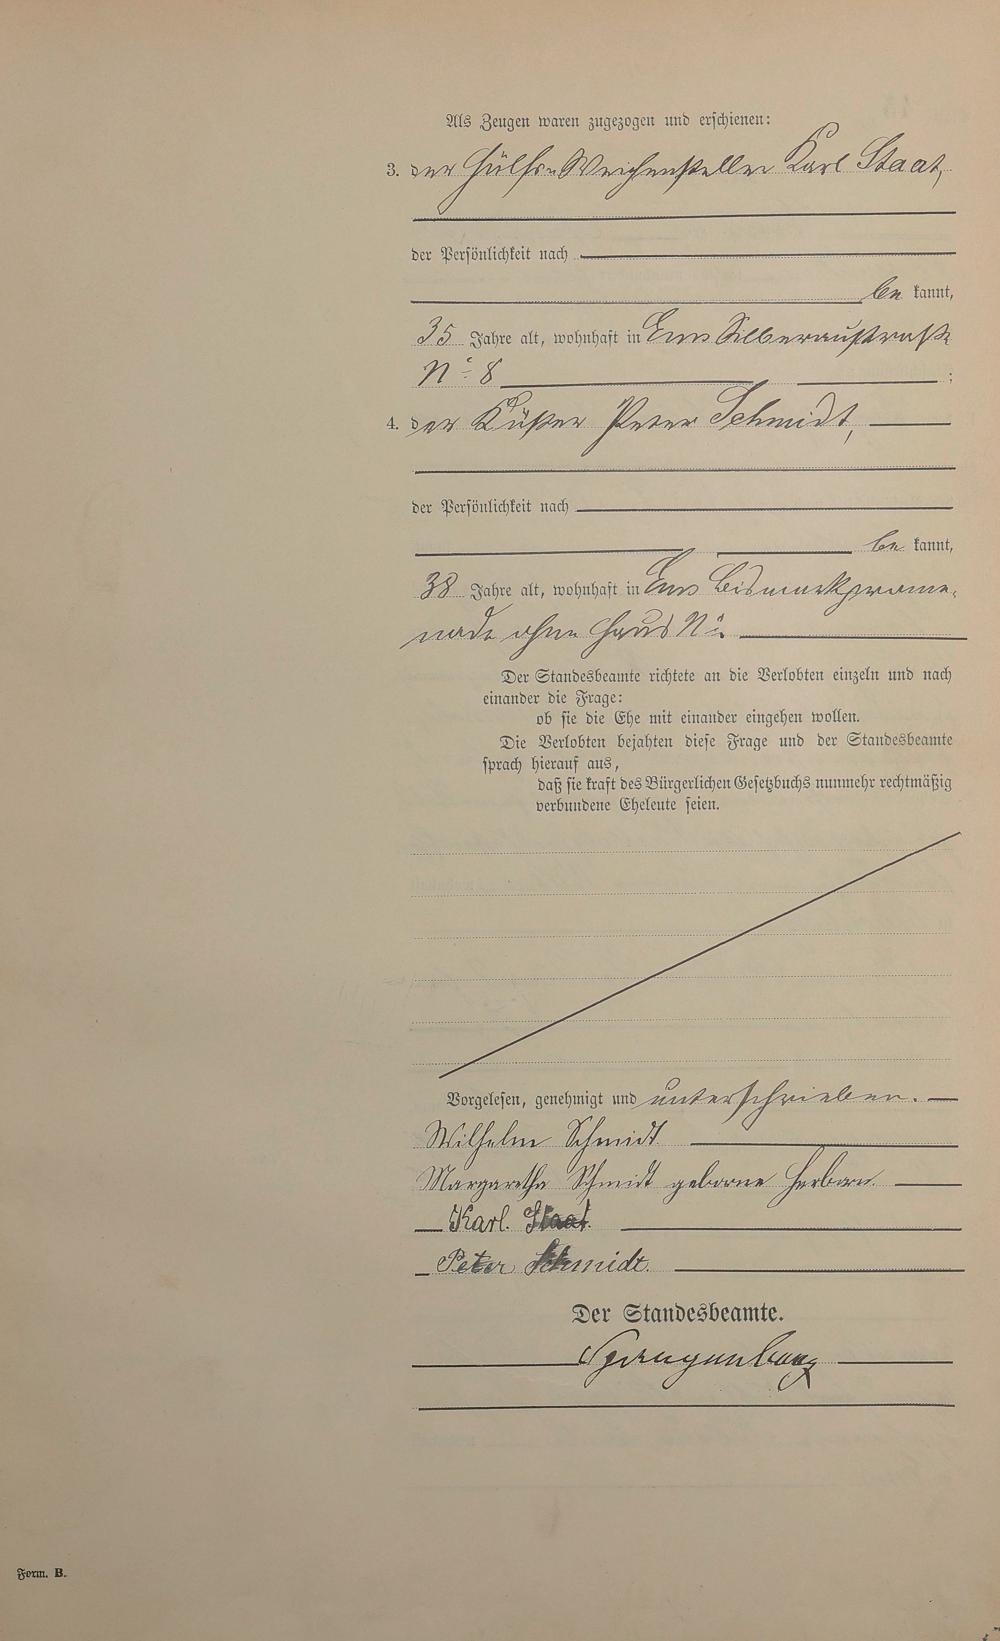 Als Zeugen waren zugezogen und erschienen:
3. der Hülfs-Weichensteller Karl Staat,
der Persönlichkeit nach
be kannt,
35 Jahre alt, wohnhaft in Ems Silberaustraße
No 8 ;
4. der Küster Peter Schmidt,
der Persönlichkeit nach
be kannt,
38 Jahre alt, wohnhaft in Ems Bismarkprome-
nade ohne Haus No.
Der Standesbeamte richtete an die Verlobten einzeln und nach
einander die Frage:
ob sie die Ehe mit einander eingehen wollen.
Die Verlobten bejahten diese Frage und der Standesbeamte
sprach hierauf aus,
daß sie kraft des Bürgerlichen Gesetzbuchs nunmehr rechtmäßig
verbundene Eheleute seien.
Vorgelesen, genehmigt und unterschrieben.
Wilhelm Schmidt
Margaretha Schmidt geborne Herborn.
Karl. Staat.
Peter Schmidt.
Der Standesbeamte.
Form. B.